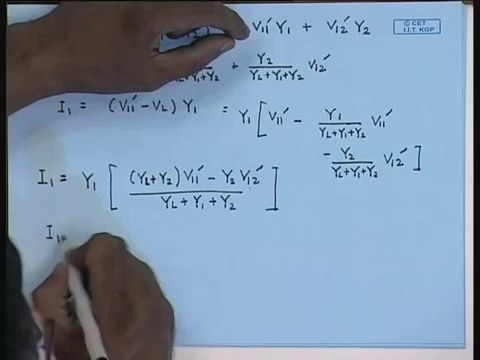 V₁₁′ Y₁ + V₁₂′ Y₂
© CET
I.I.T. KGP
+ Y₂ / (Y_L+Y₁+Y₂) V₁₂′
I₁ = (V₁₁′ − V_L) Y₁ = Y₁ [ V₁₁′ − Y₁ / (Y_L+Y₁+Y₂) V₁₁′
− Y₂ / (Y_L+Y₁+Y₂) V₁₂′ ]
I₁ = Y₁ [ ((Y_L+Y₂) V₁₁′ − Y₂ V₁₂′) / (Y_L + Y₁ + Y₂) ]
I₁